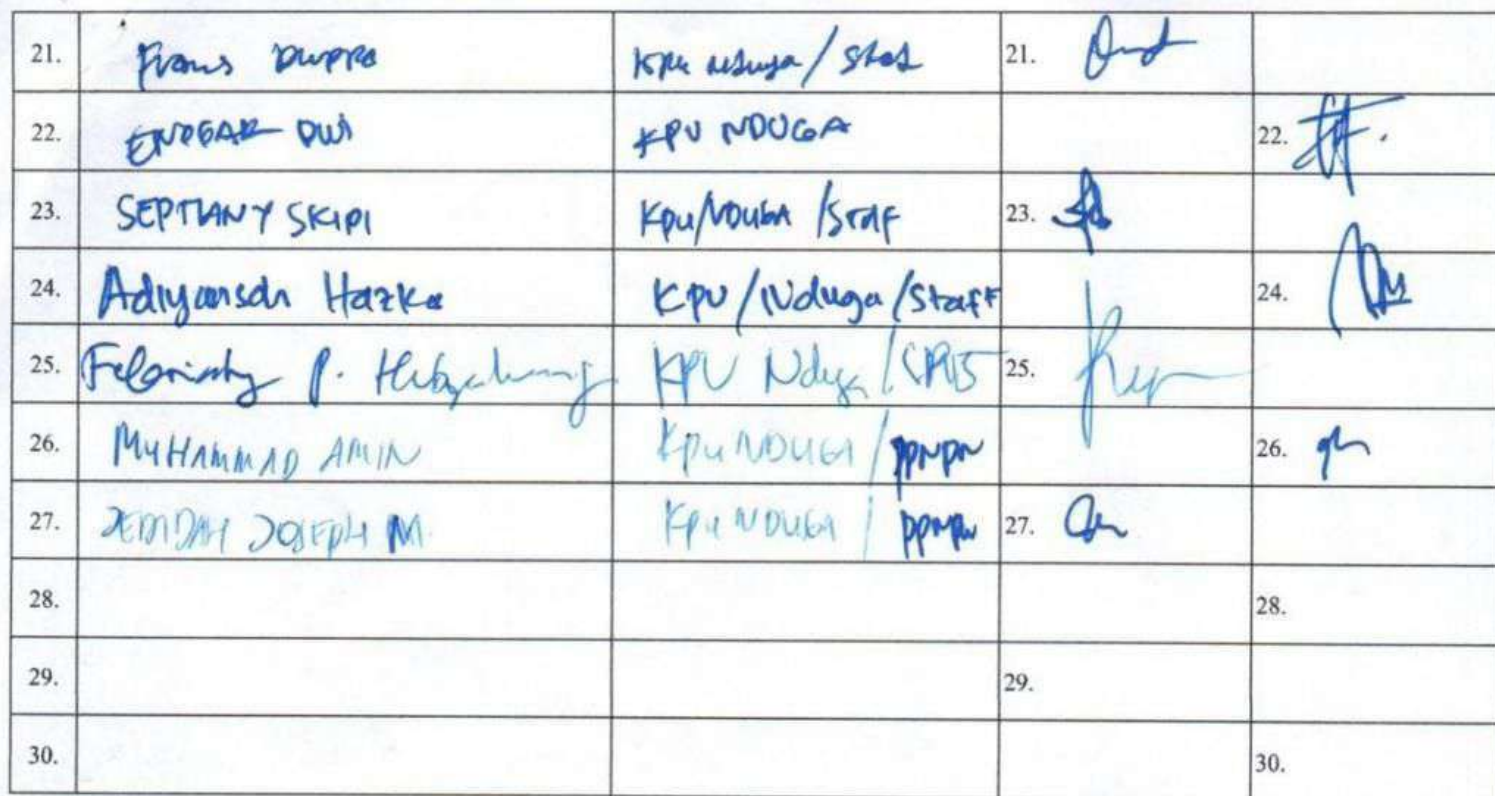 21. Frans KPU Nduga / Staf 21.
22. ENDGAR DWI KPU NDUGA 22.
23. SEPTIANY SKIPI KPU/NDUGA /STAF 23.
24. Adiyansah Hazka KPU/Nduga/Staff 24.
25. P. KPU Nduga / 25.
26. MUHAMMAD AMIN KPU NDUGA / PPNPN 26.
27. JEDIDAH JOSEPH M. KPU NDUGA / PPNPN 27.
28. 28.
29. 29.
30. 30.